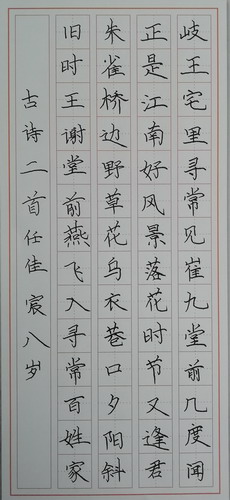 岐王宅里寻常见崔九堂前几度闻
正是江南好风景落花时节又逢君
朱雀桥边野草花乌衣巷口夕阳斜
旧时王谢堂前燕飞入寻常百姓家
古诗二首任佳宸八岁